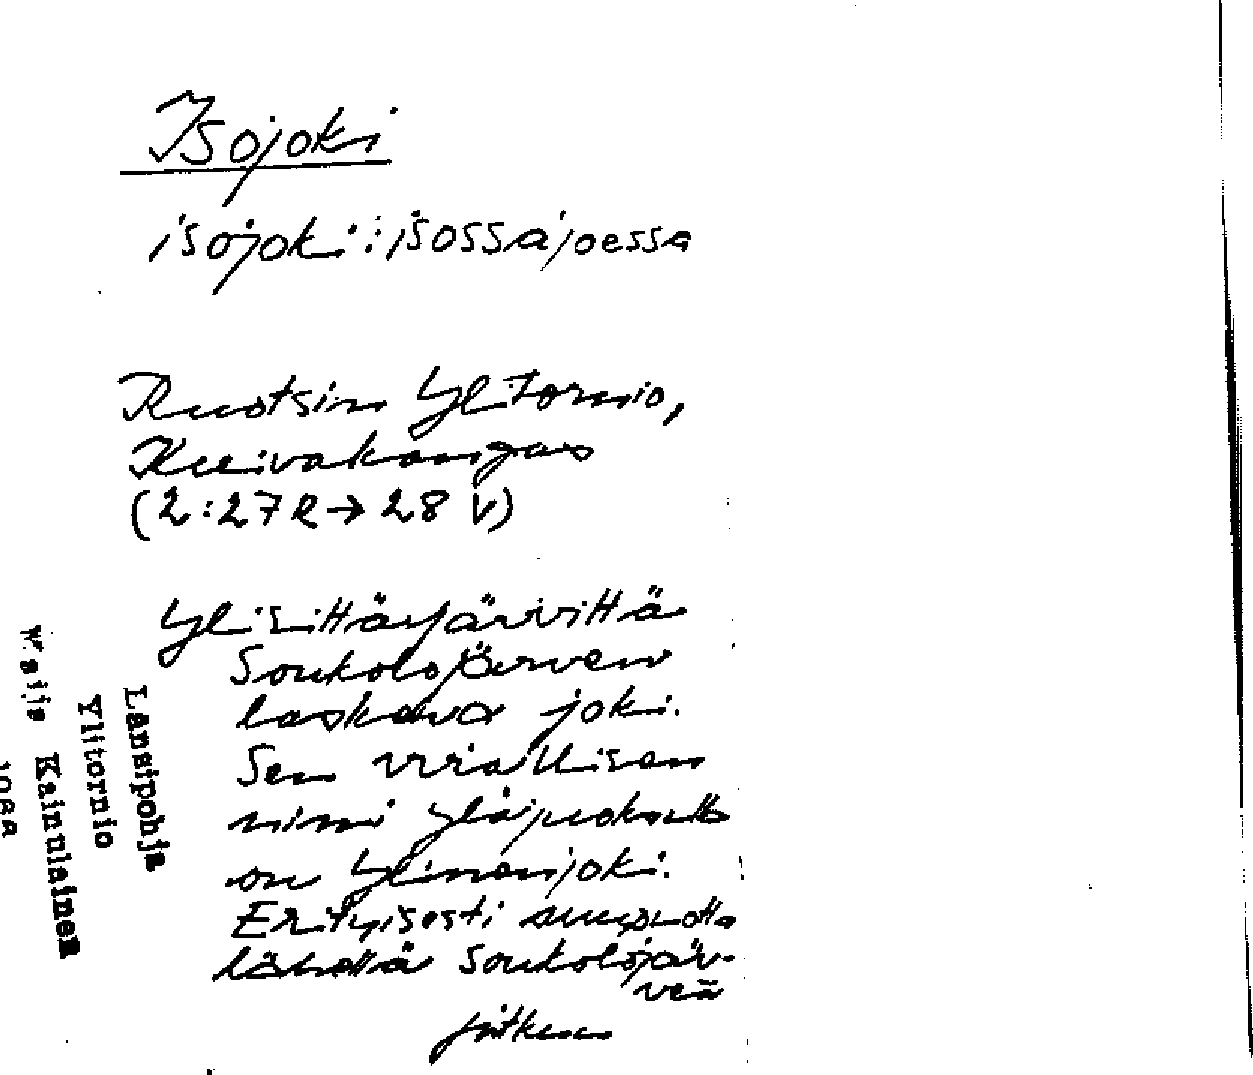 Isojoki
isojoki : isossajoessa
Ruotsin Ylitornio,
Kuivakangas
(2:27 R → 28 V)
Ylisittäsjärvittä
Soukolojärveen
laskeva joki.
Sen virallisen
nimi yläjuoksulla
on Ylinenjoki.
Erityisesti suupuolta
lähellä Soukolojär-
veä
jatkuu
Länsipohja
Ylitornio
Maija Kainulainen
1988